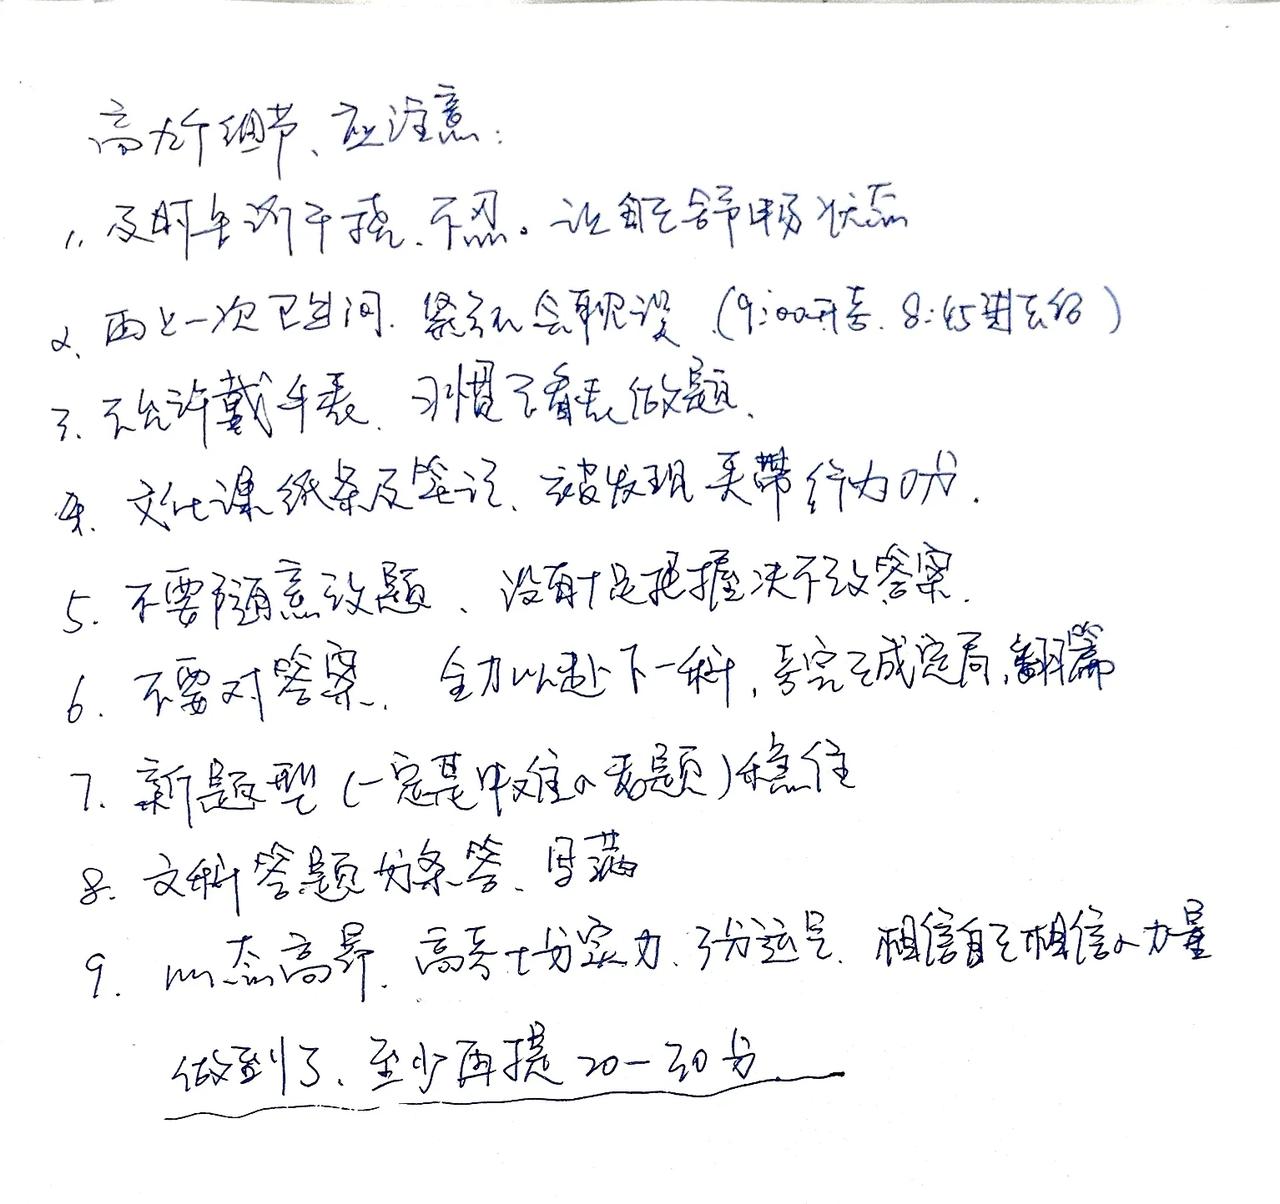 高九个细节、应注意:
1、及时告诉干扰、不忍。让自己舒畅状态
2、再上一次卫生间、紧张会耽误(9:00开考、8:45进去的)
3、不允许戴手表、习惯不看表做题、
4、文化课纸条及笔记、被发现 夹带行为0分.
5、不要随意改题、没有十足把握决不改答案.
6、不要对答案、全力以赴下一科,考完已成定局,翻篇
7、新题型(一定是中难的考题)稳住
8、文科答题分条答、写满
9、心态高昂、高考七分实力、3分运气、相信自己相信的力量
做到了、至少再提20-30分